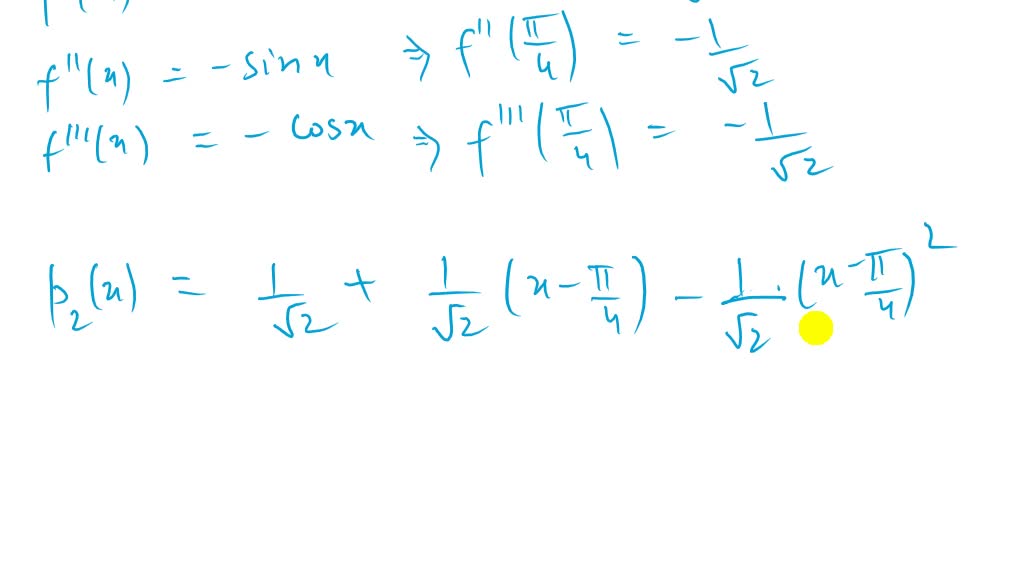 f''(x) = - sin x ⇒ f''(π/4) = - 1/√2
f'''(x) = - cos x ⇒ f'''(π/4) = - 1/√2
p₂(x) = 1/√2 + 1/√2 (x - π/4) - 1/√2 · (x - π/4)²